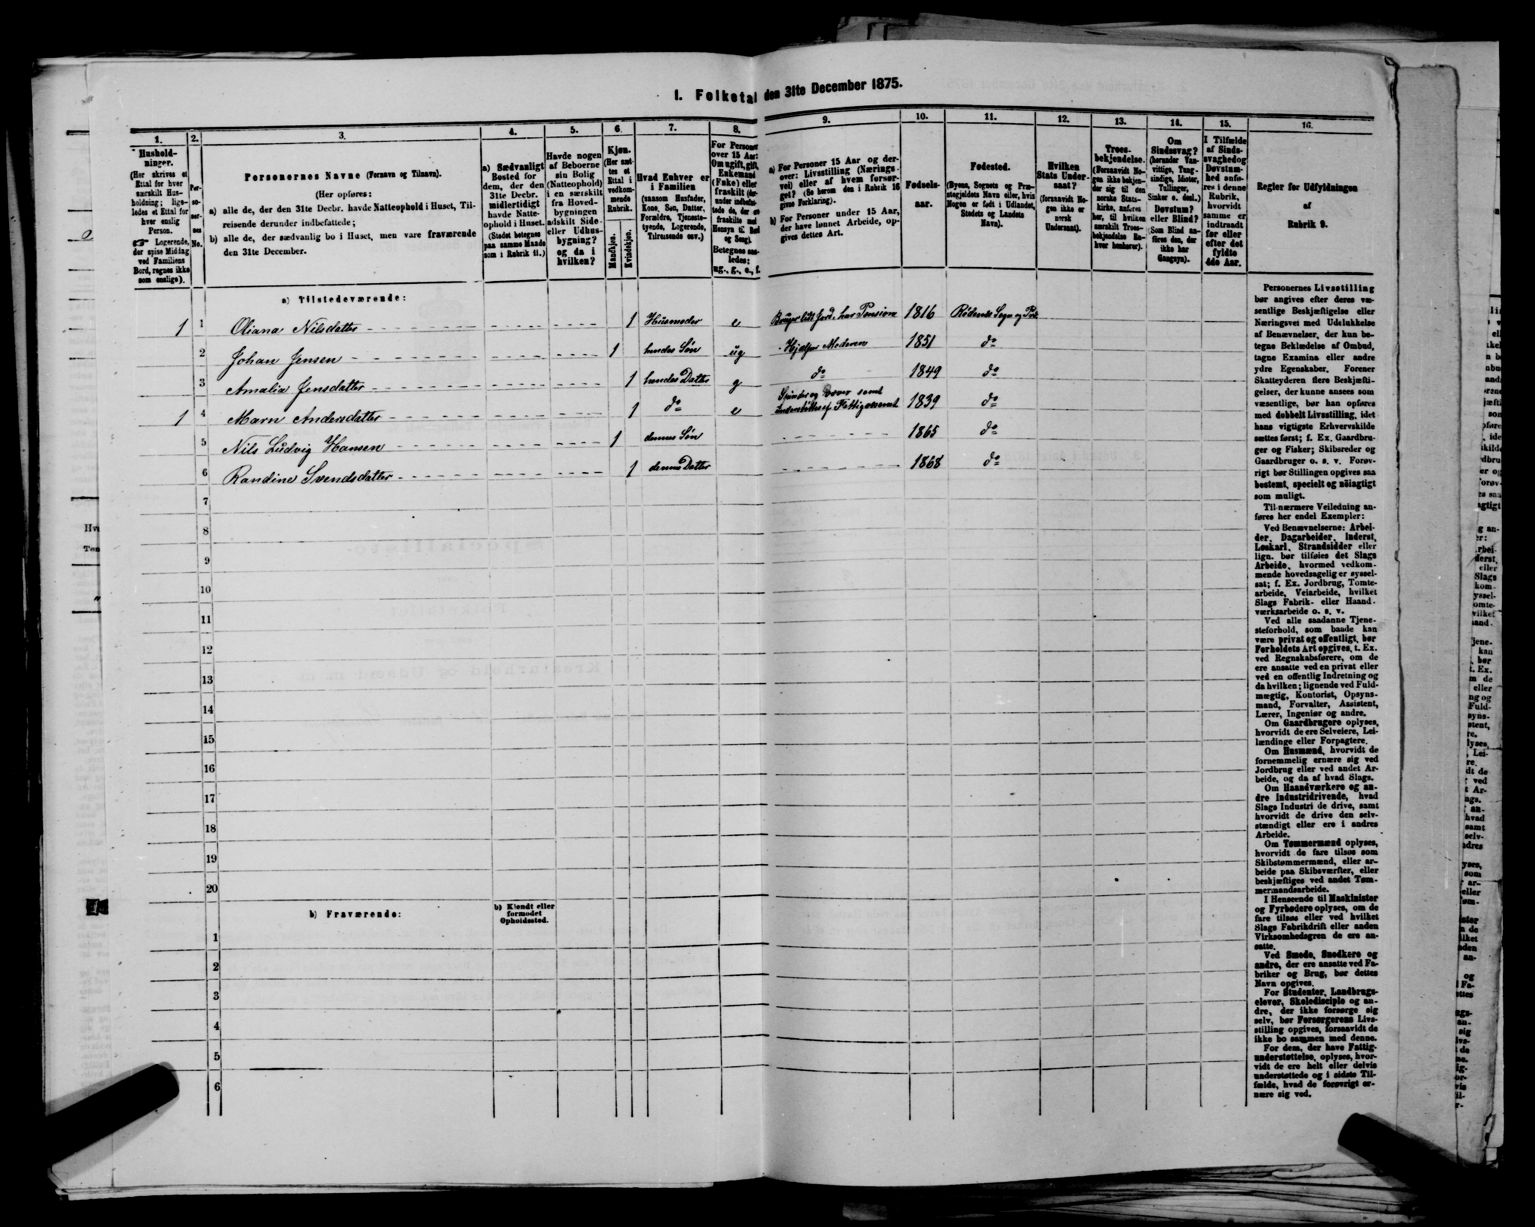 1. Folketal den 31te December 1875.
1.
2.
3.
4.
5.
6.
7.
8.
9.
10.
11.
12.
13.
14.
15.
16.
Hushold-
ninger.
(Her skrives et
Ettal for hver
særskilt Hus-
holdning; lige-
ledes et Ettal for
hver enslig
Person.
☞ Logerende,
der spise Middag
ved Familiens
Bord, regnes ikke
som enslige).
Per-
so-
ner-
nes
No.
Personernes Navne (Fornavn og Tilnavn).
(Her opføres:
a) alle de, der den 31te Decbr. havde Natteophold i Huset, Til-
reisende derunder indbefattede;
b) alle de, der sædvanlig bo i Huset, men vare fraværende
den 31te December.
a) Sædvanligt
Bosted for
dem, der den
31te Decbr.
midlertidigt
havde Natte-
ophold i Huset.
(Stedet betegnes
paa samme Maade
som i Rubrik 11.)
Havde nogen
af Beboerne
sin Bolig
(Natteophold)
i en særskilt
fra Hoved-
bygningen
adskilt Side-
eller Udhus-
bygning?
og da i
hvilken?
Kjøn.
(Her sæt-
tes et
Ettal i
vedkom-
mende
Rubrik.
Mandkjøn.
Kvindekjøn.
Hvad Enhver er
i Familien
(saasom Husfader,
Kone, Søn, Datter,
Forældre, Tjeneste-
tyende, Logerende,
Tilreisende osv.)
For Personer
over 15 Aar:
Om ugift, gift,
Enkemand
(Enke) eller
fraskilt (der-
under indbefat-
tede de, der ere
fraskilte med
Hensyn til Bord
og Seng).
Betegnes saa-
ledes:
ug., g., e., f.
a) For Personer 15 Aar og der-
over: Livsstilling (Nærings-
vei) eller af hvem forsør-
get? (Se herom den i Rubrik 16
givne Forklaring).
b) For Personer under 15 Aar,
der have lønnet Arbeide, op-
gives dettes Art.
Fødsels-
aar.
Fødested.
(Byens, Sognets og Præ-
stegjeldets Navn eller, hvis
Nogen er født i Udlandet,
Stedets og Landets
Navn).
Hvilken
Stats Under-
saat?
(forsaavidt No-
gen ikke er
norsk
Undersaat).
Troes-
bekjendelse.
(Forsaavidt No-
gen ikke bekjen-
der sig til den
norske Stats-
kirke, anføres
her, til hvilken
særskilt Troes-
bekjendelse En-
hver henhører).
Om
Sindssvag?
(herunder Van-
vittige, Tung-
sindige, Idioter,
Tullinger,
Sinker o. desl.)
Døvstum?
eller Blind?
(Som Blind an-
føres den, der
ikke har
Gangsyn).
I Tilfælde
af Sinds-
svaghed og
Døvstum-
hed anfø-
res i denne
Rubrik,
hvorvidt
samme er
indtraadt
før eller
efter det
fyldte
4de Aar.
Regler for Udfyldningen
af
Rubrik 9.
a) Tilstedeværende:
1 1 Oliana Nilsdatter 1 Husmoder e Bruger lidt Jord, har Pension 1816 Rødenes Sogn og Pr
2 Johan Jensen 1 hendes Søn ug Hjælper Moderen 1851 do
3 Amalia Jensdatter 1 hendes Datter g do 1849 do
1 4 Marn Andersdatter 1 do e Spinder og Væver samt
understøttes af Fattigvæsenet 1839 do
5 Nils Ludvig Hansen 1 dennes Søn 1865 do
6 Randine Svendsdatter 1 dennes Datter 1868 do
7
8
9
10
11
12
13
14
15
16
17
18
19
20
b) Fraværende:
b) Kjendt eller
formodet
Opholdssted.
1
2
3
4
5
6
Personernes Livsstilling
bør angives efter deres væ-
sentlige Beskjæftigelse eller
Næringsvei med Udelukkelse
af Benævnelser, der kun be-
tegne Beklædelse af Ombud,
tagne Examina eller andre
ydre Egenskaber. Forener
Skatteyderen flere Beskjæfti-
gelser, der kunne ansees som
væsentlige, bør han opføres
med dobbelt Livsstilling, idet
hans vigtigste Erhvervskilde
sættes først; f. Ex. Gaardbru-
ger og Fisker; Skibsreder og
Gaardbruger o. s. v. Forøv-
rigt bør Stillingen opgives saa
bestemt, specielt og nöiagtigt
som muligt.
Til nærmere Veiledning an-
føres her endel Exempler:
Ved Benævnelserne: Arbei-
der, Dagarbeider, Inderst,
Løskarl, Strandsidder eller
lign. bør tilføies det Slags
Arbeide, hvormed vedkom-
mende hovedsagelig er syssel-
sat; f. Ex. Jordbrug, Tomte-
arbeide, Veiarbeide, hvilket
Slags Fabrik- eller Haand-
værksarbeide o. s. v.
Ved alle saadanne Tjene-
steforhold, som baade kan
være privat og offentligt, bør
Forholdets Art opgives, t. Ex.
ved Regnskabsførere, om de
ere ansatte ved en privat eller
ved en offentlig Indretning og
da hvilken; lignende ved Fuld-
mægtig, Kontorist, Opsyns-
mand, Forvalter, Assistent,
Lærer, Ingeniør og andre.
Om Gaardbrugere oplyses,
hvorvidt de ere Selveiere, Lei-
lændinge eller Forpagtere.
Om Husmænd, hvorvidt de
fornemmelig ernære sig ved
Jordbrug eller ved andet Ar-
beide, og da af hvad Slags.
Om Haandværkere og an-
dre Industridrivende, hvad
Slags Industri de drive, samt
hvorvidt de drive den selv-
stændigt eller ere i andres
Arbeide.
Om Tømmermænd oplyses,
hvorvidt de fare tilsøs som
Skibstømmermænd, eller ar-
beide paa Skibsværfter, eller
beskjæftiges ved andet Tøm-
mermandsarbeide.
I Henseende til Maskinister
og Fyrbødere oplyses, om de
fare tilsøs eller ved hvilket
Slags Fabrikdrift eller anden
Virksomhedsgren de ere an-
satte.
Ved Smede, Snedkere og
andre, der ere ansatte ved Fa-
briker og Brug, bør dettes
Navn opgives.
For Studenter, Landbrugs-
elever, Skoledisciple og an-
dre, der ikke forsørge sig
selv, bør Forsørgerens Livs-
stilling opgives, forsaavidt de
ikke bo sammen med denne.
For dem, der have Fattig-
understøttelse, oplyses, hvor-
vidt de ere helt eller delvis
understøttede og i sidste Til-
fælde, hvad de forøvrigt er-
nære sig ved.